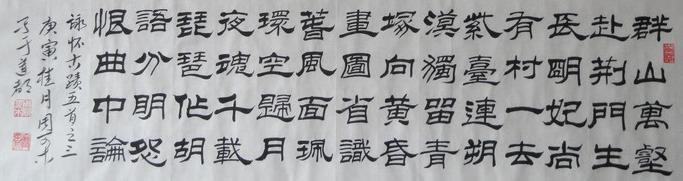 群山萬壑
赴荆門生
長明妃尚
有村一去
紫臺連朔
漠獨留青
塚向黄昏
畫圖省識
春風面珮
環空歸月
夜魂千載
琵琶作胡
語分明怨
恨曲中論
詠怀古蹟五首之三
庚寅桂月周